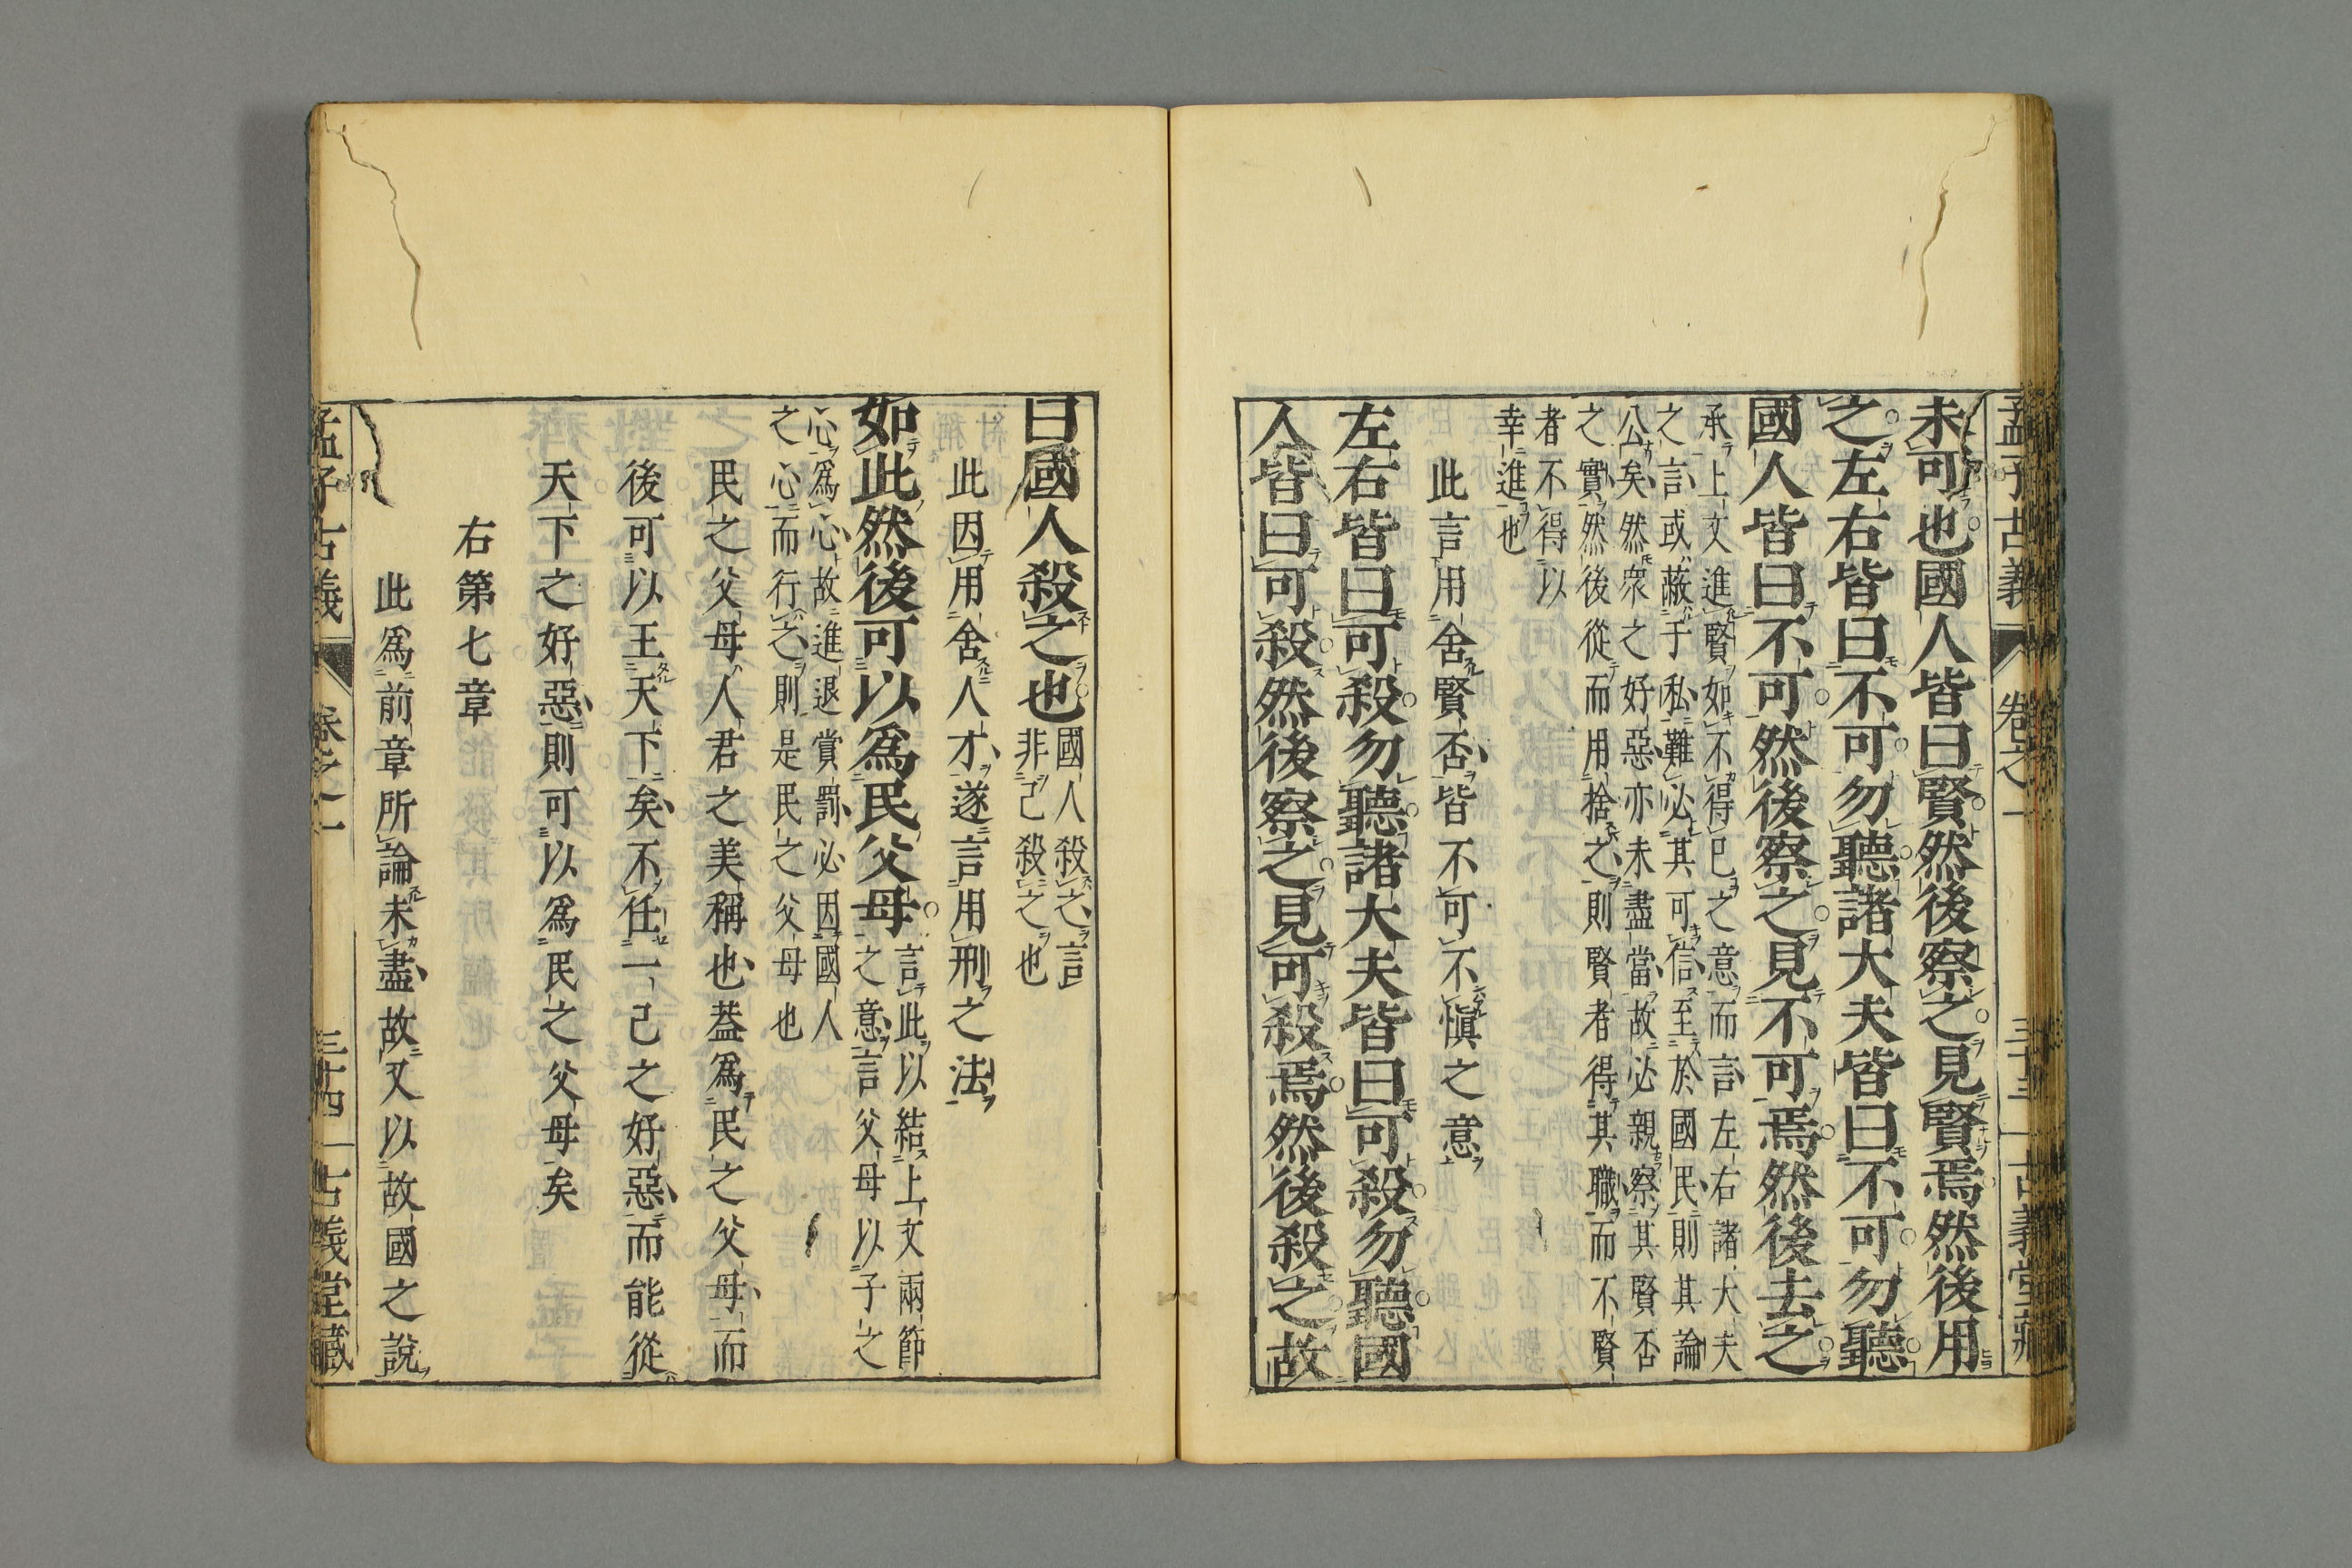 孟子古義 卷之一 三十三 古義堂藏
未可也國人皆曰賢然後察之見賢焉然後用
之左右皆曰不可勿聽諸大夫皆曰不可勿聽
國人皆曰不可然後察之見不可焉然後去之
承上文進賢如不得已之意而言左右諸大夫
之言或蔽于私難必其可信至於國民則其論
公矣然衆之好惡亦未盡當故必親察其賢否
之實然後從而用捨之則賢者得其職而不賢
者不得以
幸進也
此言用舍賢否皆不可不愼之意
左右皆曰可殺勿聽諸大夫皆曰可殺勿聽國
人皆曰可殺然後察之見可殺焉然後殺之故
曰國人殺之也
國人殺之言
非己殺之也
此因用舍人才遂言用刑之法
如此然後可以爲民父母
言此以結上文兩節
之意言父母以子之
心爲心故進退賞罰必因國人
之心而行之則是民之父母也
民之父母人君之美稱也葢爲民之父母而
後可以王天下矣不任一己之好惡而能從
天下之好惡則可以爲民之父母矣
右第七章
此爲前章所論未盡故又以故國之說
孟子古義 卷之一 三十四 古義堂藏